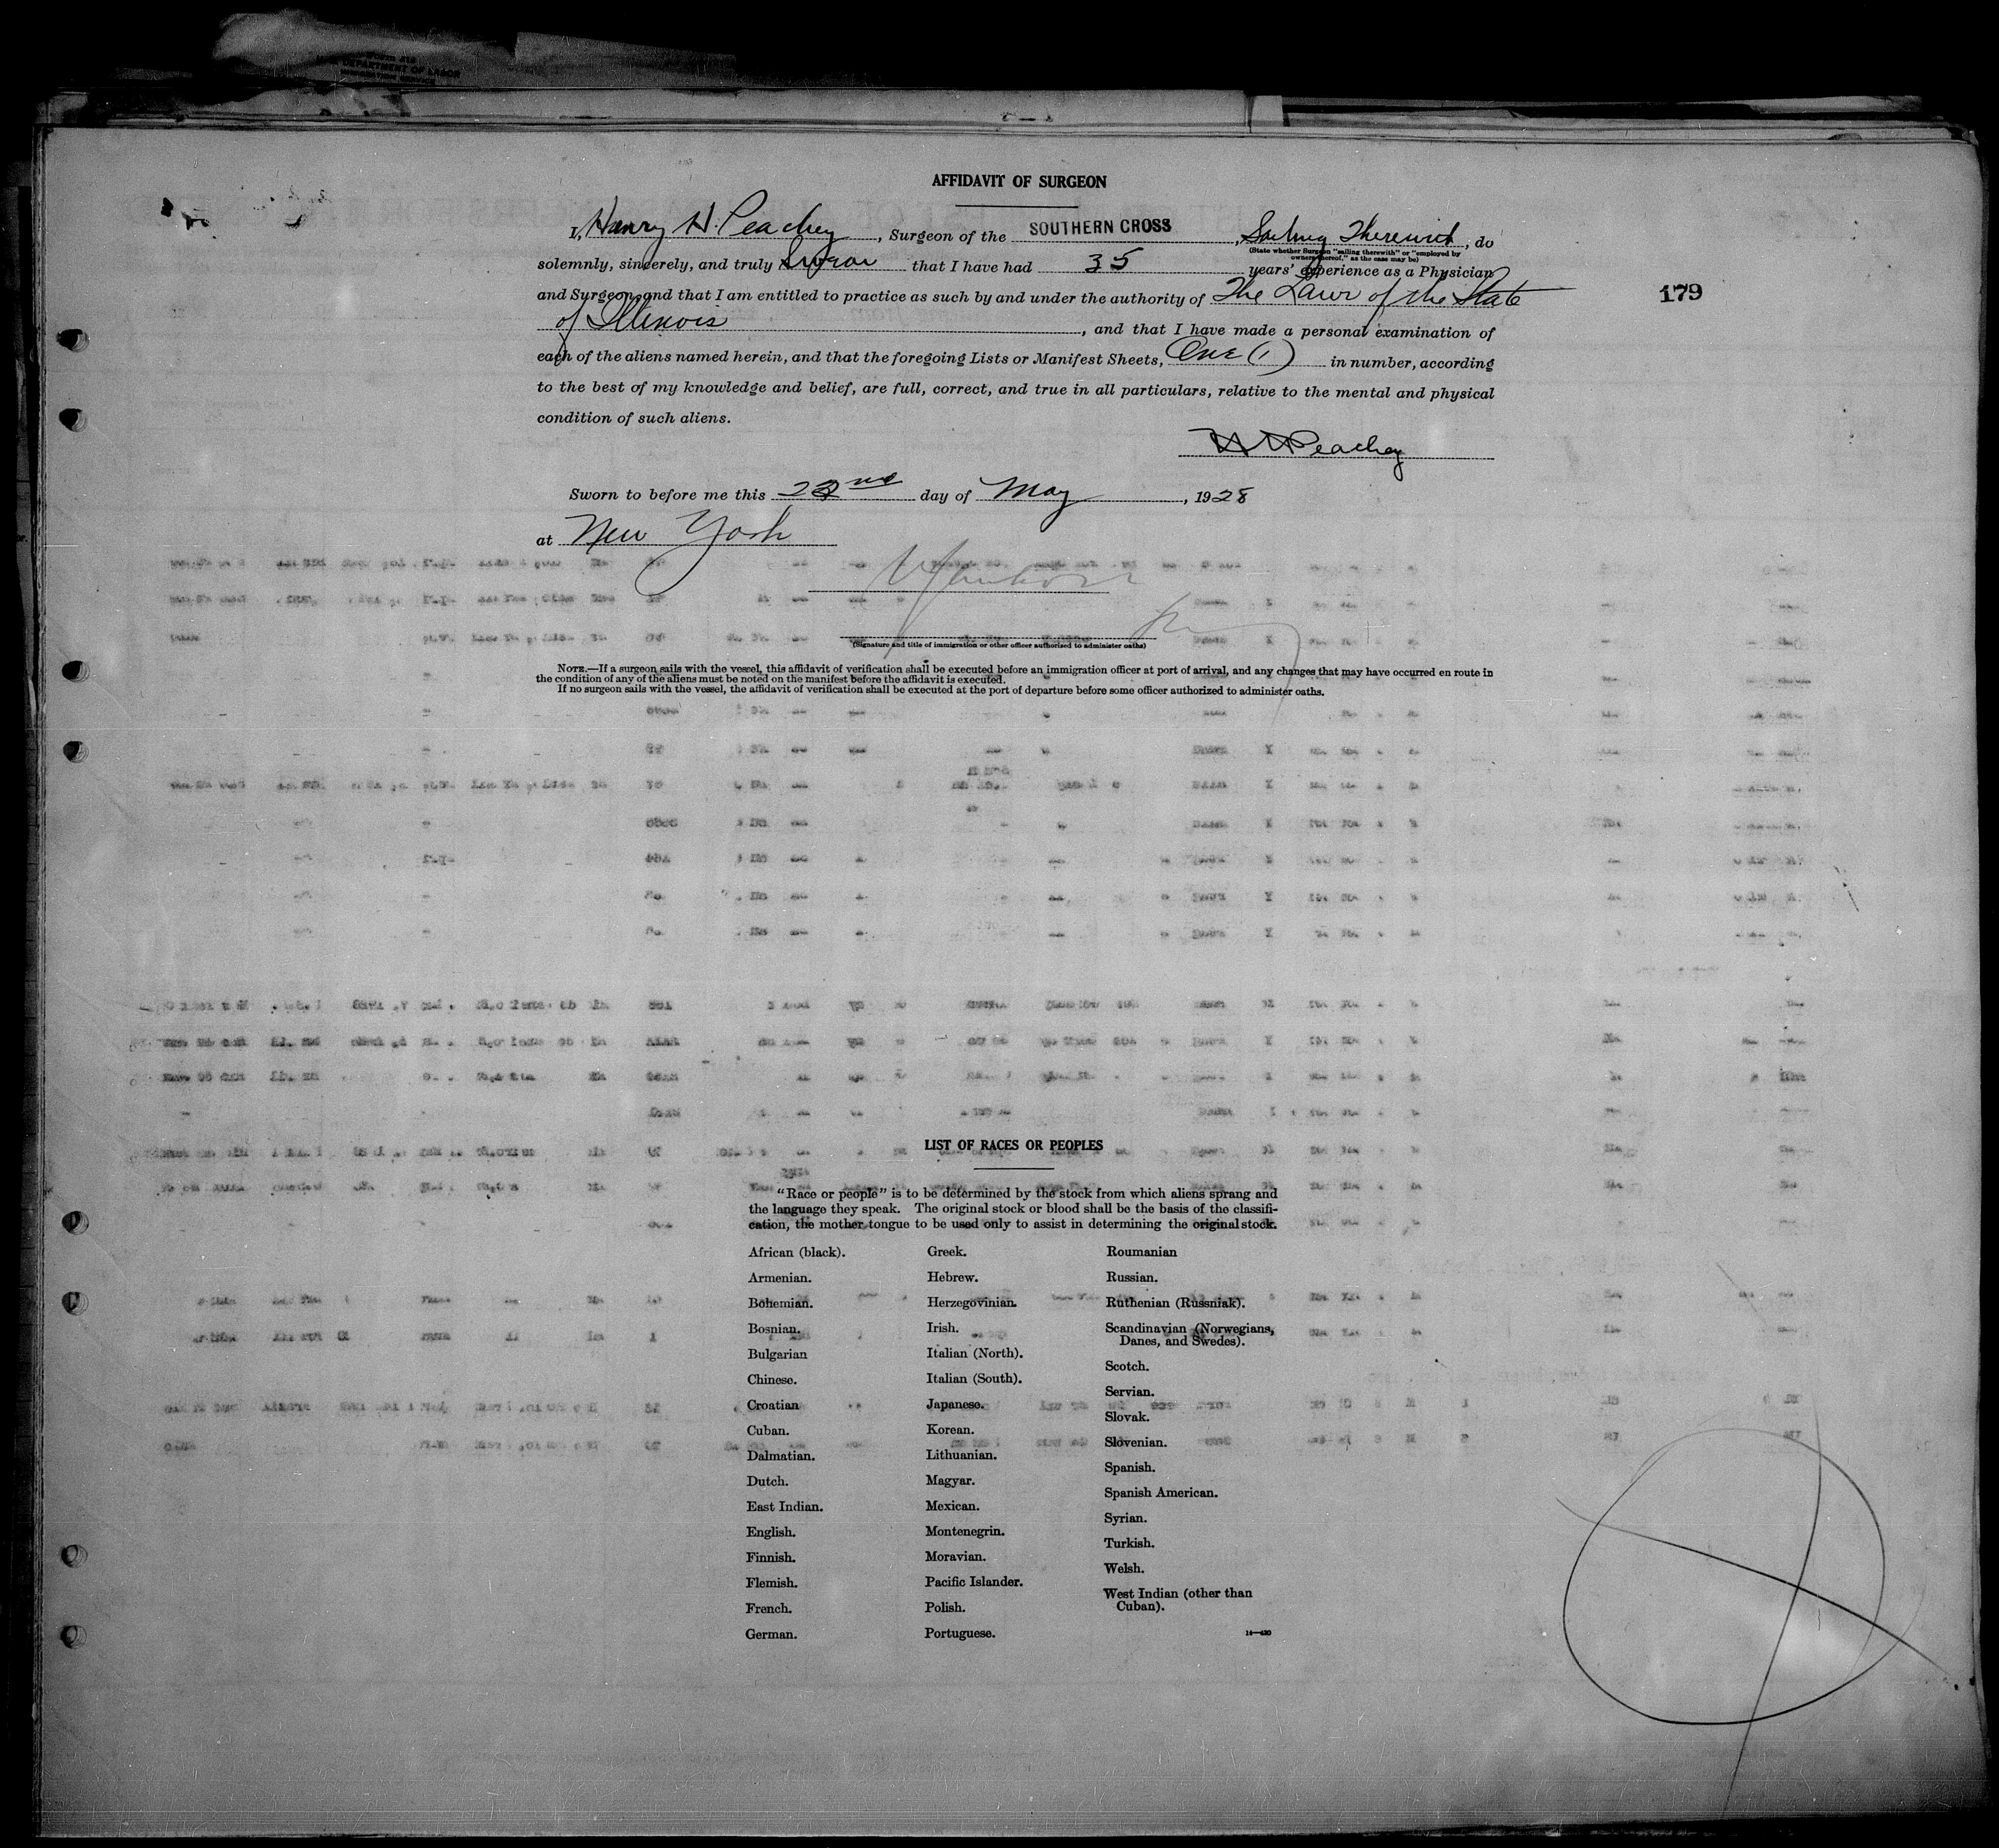 AFFIDAVIT OF SURGEON
I, Henry H. Peachey, Surgeon of the SOUTHERN CROSS, Sailing Therewith, do
(State whether Surgeon "sailing therewith" or "employed by
owners thereof," as the case may be)
solemnly, sincerely, and truly Swear that I have had 35 years' experience as a Physician
and Surgeon and that I am entitled to practice as such by and under the authority of The Laws of the State
179
of Illinois, and that I have made a personal examination of
each of the aliens named herein, and that the foregoing Lists or Manifest Sheets, One (1) in number, according
to the best of my knowledge and belief, are full, correct, and true in all particulars, relative to the mental and physical
condition of such aliens.
H H Peachey
Sworn to before me this 22nd day of May, 1928
at New York
(Signature and title of immigration or other officer authorized to administer oaths)
NOTE.—If a surgeon sails with the vessel, this affidavit of verification shall be executed before an immigration officer at port of arrival, and any changes that may have occurred en route in
the condition of any of the aliens must be noted on the manifest before the affidavit is executed.
If no surgeon sails with the vessel, the affidavit of verification shall be executed at the port of departure before some officer authorized to administer oaths.
LIST OF RACES OR PEOPLES
"Race or people" is to be determined by the stock from which aliens sprang and
the language they speak. The original stock or blood shall be the basis of the classifi-
cation, the mother tongue to be used only to assist in determining the original stock.
African (black).
Armenian.
Bohemian.
Bosnian.
Bulgarian
Chinese.
Croatian
Cuban.
Dalmatian.
Dutch.
East Indian.
English.
Finnish.
Flemish.
French.
German.
Greek.
Hebrew.
Herzegovinian.
Irish.
Italian (North).
Italian (South).
Japanese.
Korean.
Lithuanian.
Magyar.
Mexican.
Montenegrin.
Moravian.
Pacific Islander.
Polish.
Portuguese.
Roumanian
Russian.
Ruthenian (Russniak).
Scandinavian (Norwegians,
Danes, and Swedes).
Scotch.
Servian.
Slovak.
Slovenian.
Spanish.
Spanish American.
Syrian.
Turkish.
Welsh.
West Indian (other than
Cuban).